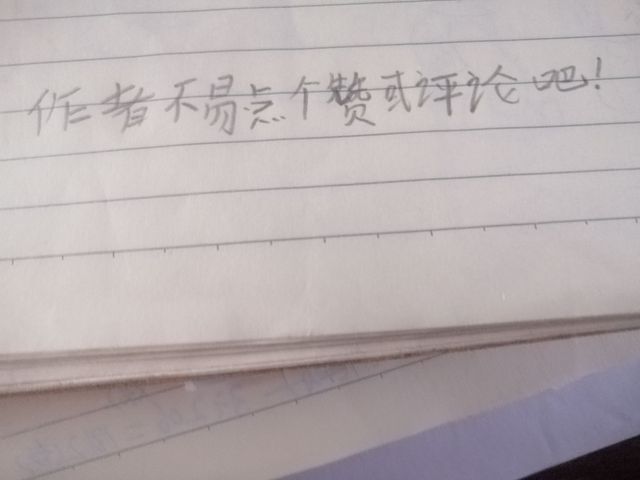 作者不易点个赞或评论吧!